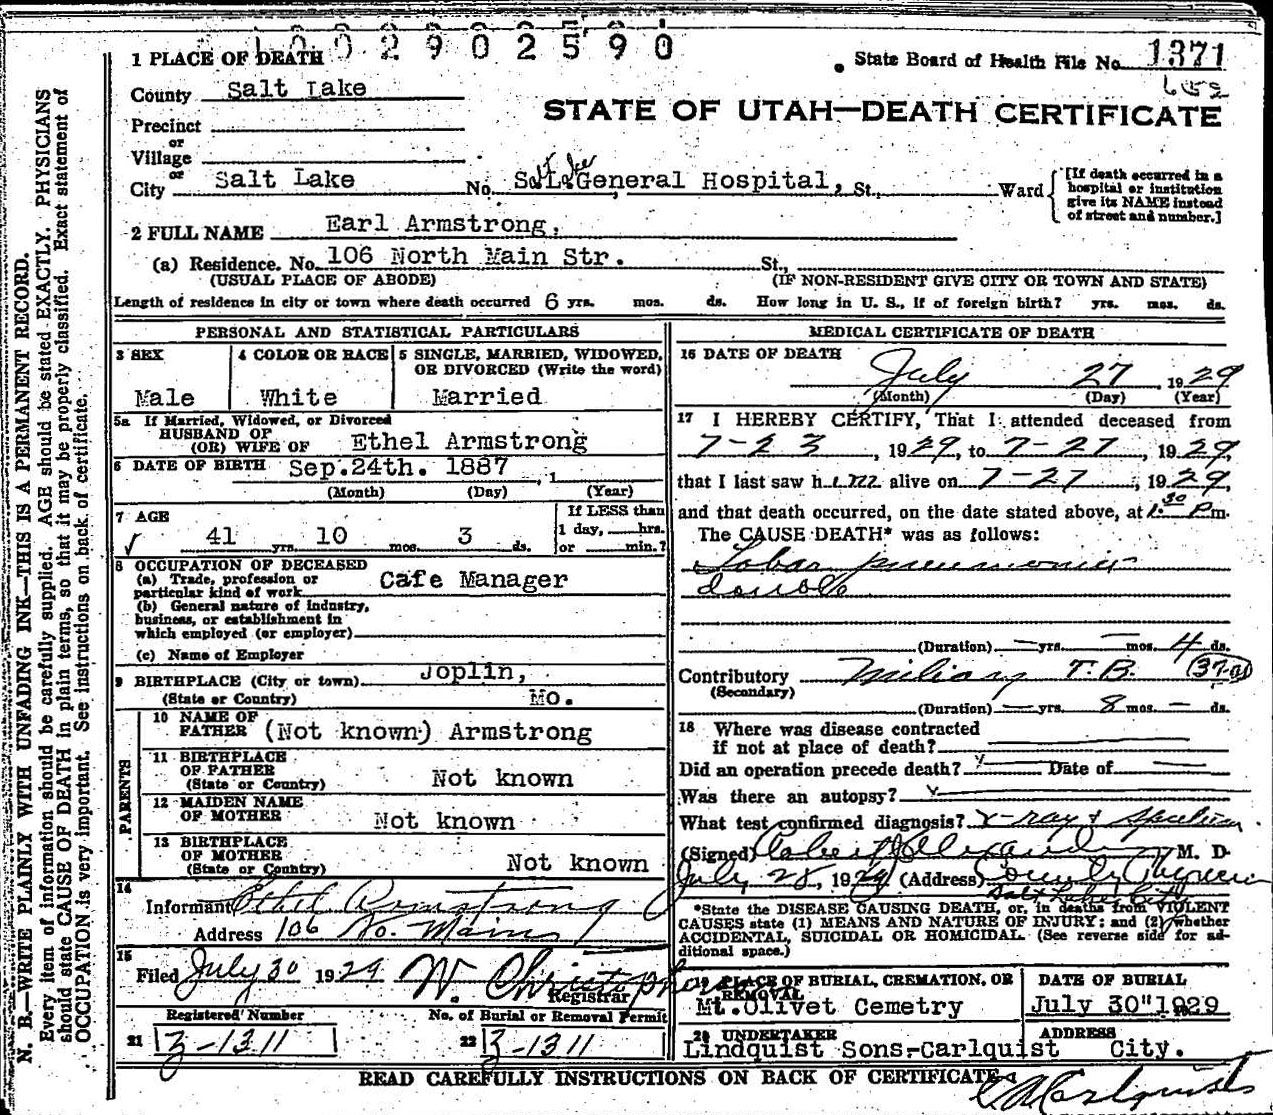 1002902590
1 PLACE OF DEATH
State Board of Health File No. 1371
County Salt Lake
652
STATE OF UTAH—DEATH CERTIFICATE
Precinct
or
Village
or
City Salt Lake No. Salt Lake General Hospital, St., Ward
[If death occurred in a hospital or institution give its NAME instead of street and number.]
2 FULL NAME Earl Armstrong,
(a) Residence. No. 106 North Main Str. St.,
(USUAL PLACE OF ABODE) (IF NON-RESIDENT GIVE CITY OR TOWN AND STATE)
Length of residence in city or town where death occurred 6 yrs. mos. ds. How long in U. S., if of foreign birth? yrs. mos. ds.
PERSONAL AND STATISTICAL PARTICULARS
3 SEX
Male
4 COLOR OR RACE
White
5 SINGLE, MARRIED, WIDOWED,
OR DIVORCED (Write the word)
Married
5a If Married, Widowed, or Divorced
HUSBAND OF
(OR) WIFE OF Ethel Armstrong
6 DATE OF BIRTH Sep. 24th. 1887, 1
(Month) (Day) (Year)
7 AGE
41 yrs. 10 mos. 3 ds.
If LESS than
1 day, hrs.
or min.?
8 OCCUPATION OF DECEASED
(a) Trade, profession or
particular kind of work Cafe Manager
(b) General nature of industry,
business, or establishment in
which employed (or employer)
(c) Name of Employer
9 BIRTHPLACE (City or town) Joplin,
(State or Country) Mo.
PARENTS
10 NAME OF
FATHER (Not known) Armstrong
11 BIRTHPLACE
OF FATHER
(State or Country) Not known
12 MAIDEN NAME
OF MOTHER Not known
13 BIRTHPLACE
OF MOTHER
(State or Country) Not known
14
Informant Ethel Armstrong
Address 106 No. Main
15
Filed July 30 1929 W. Christopherson
Registrar
Registered Number No. of Burial or Removal Permit
21 Z-1311 22 Z-1311
MEDICAL CERTIFICATE OF DEATH
16 DATE OF DEATH
July 27, 1929
(Month) (Day) (Year)
17 I HEREBY CERTIFY, That I attended deceased from
7-23, 1929, to 7-27, 1929,
that I last saw him alive on 7-27, 1929,
and that death occurred, on the date stated above, at 1:30 Pm.
The CAUSE DEATH* was as follows:
Lobar pneumonia
double
(Duration) — yrs. — mos. 4 ds.
Contributory Miliary T.B. (37-a)
(Secondary)
(Duration) — yrs. 8 mos. — ds.
18 Where was disease contracted
if not at place of death?
Did an operation precede death? Date of
Was there an autopsy?
What test confirmed diagnosis? X-ray & Sputum
(Signed) Robert Alexander M. D.
July 28, 1929 (Address) County Physician
Salt Lake City
*State the DISEASE CAUSING DEATH, or, in deaths from VIOLENT
CAUSES state (1) MEANS AND NATURE OF INJURY; and (2) whether
ACCIDENTAL, SUICIDAL OR HOMICIDAL. (See reverse side for ad-
ditional space.)
19 PLACE OF BURIAL, CREMATION, OR
REMOVAL
Mt. Olivet Cemetry
DATE OF BURIAL
July 30" 1929
20 UNDERTAKER
Lindquist Sons-Carlquist
ADDRESS
City.
READ CAREFULLY INSTRUCTIONS ON BACK OF CERTIFICATE
C A Carlquist
N. B.—WRITE PLAINLY WITH UNFADING INK—THIS IS A PERMANENT RECORD.
Every item of information should be carefully supplied. AGE should be stated EXACTLY. PHYSICIANS
should state CAUSE OF DEATH in plain terms, so that it may be properly classified. Exact statement of
OCCUPATION is very important. See instructions on back of certificate.